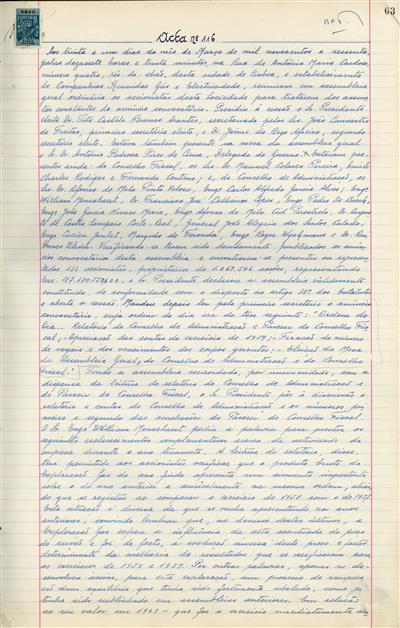 63
Acta nº 116
Aos trinta e um dias do mês de Março de mil novecentos e sessenta,
pelas dezassete horas e trinta minutos, na Rua de António Maria Cardoso,
número quatro, rés-do-chão, desta cidade de Lisboa, e estabelecimento
da Companhias Reunidas Gás e Electricidade, reuniram em assembleia
geral ordinária os accionistas desta Sociedade para tratarem dos assun-
tos constantes do anúncio convocatório. Presidiu à sessão o Sr. Presidente
eleito Dr. Tito Castelo Branco Arantes, secretariado pelos Srs. João Lancastre
de Freitas, primeiro secretário eleito, e Dr. Jaime do Rego Afreixo, segundo
secretário eleito. Estava também presente na mesa da assembleia geral
o Sr. Dr. António Pedrosa Pires de Lima, Delegado do Governo. Estavam pre-
sentes ainda: do Conselho Fiscal, os Srs. Manuel Pereira,
Charles Rodrigues e Fernando Centeno; e, do Conselho de Administração, os
Srs. Dr. Afonso de Melo Pinto Veloso, Engº Carlos Alfredo Garcia Alves, Engº
William Monschaert, Dr. Francisco José Calheiros Lopes, Engº Pedro
Engº João Garcia Nunes Mexia, Engº Afonso de Melo Cid Perestrelo, Dr. Augusto
de Castro Sampaio Corte-Real, General João Alegria dos Santos
Engº Marquês de Fronteira, Engº Roger
Verificando-se terem sido devidamente publicados os anún-
cios convocatórios desta assembleia e encontrarem-se presentes ou represen-
tados 133 accionistas, proprietários de acções, representando
o Sr. Presidente declarou a assembleia validamente
constituída, de conformidade com o disposto no artigo dos Estatutos
e aberta a sessão. Mandou depois ler pelo primeiro secretário o anúncio
convocatório, cuja ordem do dia era do teor seguinte: "Ordem do
dia.- Relatório do Conselho de Administração e Parecer do Conselho Fis-
cal;- Apreciação das contas do exercício de 1959;- Fixação do número
de vogais e dos vencimentos dos corpos gerentes;- Eleição da Mesa
da Assembleia Geral, do Conselho de Administração e do Conselho
Fiscal". Tendo a assembleia concordado, por unanimidade, com a
dispensa da leitura do relatório do Conselho de Administração e
do Parecer do Conselho Fiscal, o Sr. Presidente pôs à discussão o
relatório e contas do Conselho de Administração e os números
e segundo das conclusões do Parecer do Conselho Fiscal.
O Sr. Engº William Monschaert pediu a palavra para prestar os
seguintes esclarecimentos complementares acerca da actividade da
empresa durante o ano transacto. A leitura do relatório, disse,
terá permitido aos accionistas verificar que o produto bruto da
Exploração Gás do ano findo apresenta um aumento importante
sobre o do ano anterior e sensivelmente na mesma ordem
do que se registou ao comparar o exercício de 1958 com o de 1957.
Esta situação é diversa da que se vinha apresentando nos anos
anteriores, convindo lembrar que, no decurso destes últimos, a
Exploração Gás sofreu a influência da alta acentuada do preço
do carvão e foi, de facto, a evolução inversa deste preço o factor
determinante da melhoria de resultados que se verificaram para
os exercícios de 1958 e 1959. Por outras palavras, apenas se de-
senvolveu assim, para esta exploração, um processo de recupera-
ção dum equilíbrio que tinha sido fortemente abalado, como já
tinha sido sublinhado em assembleias anteriores. Com relação
ao seu valor em 1949 - que foi o exercício imediatamente an